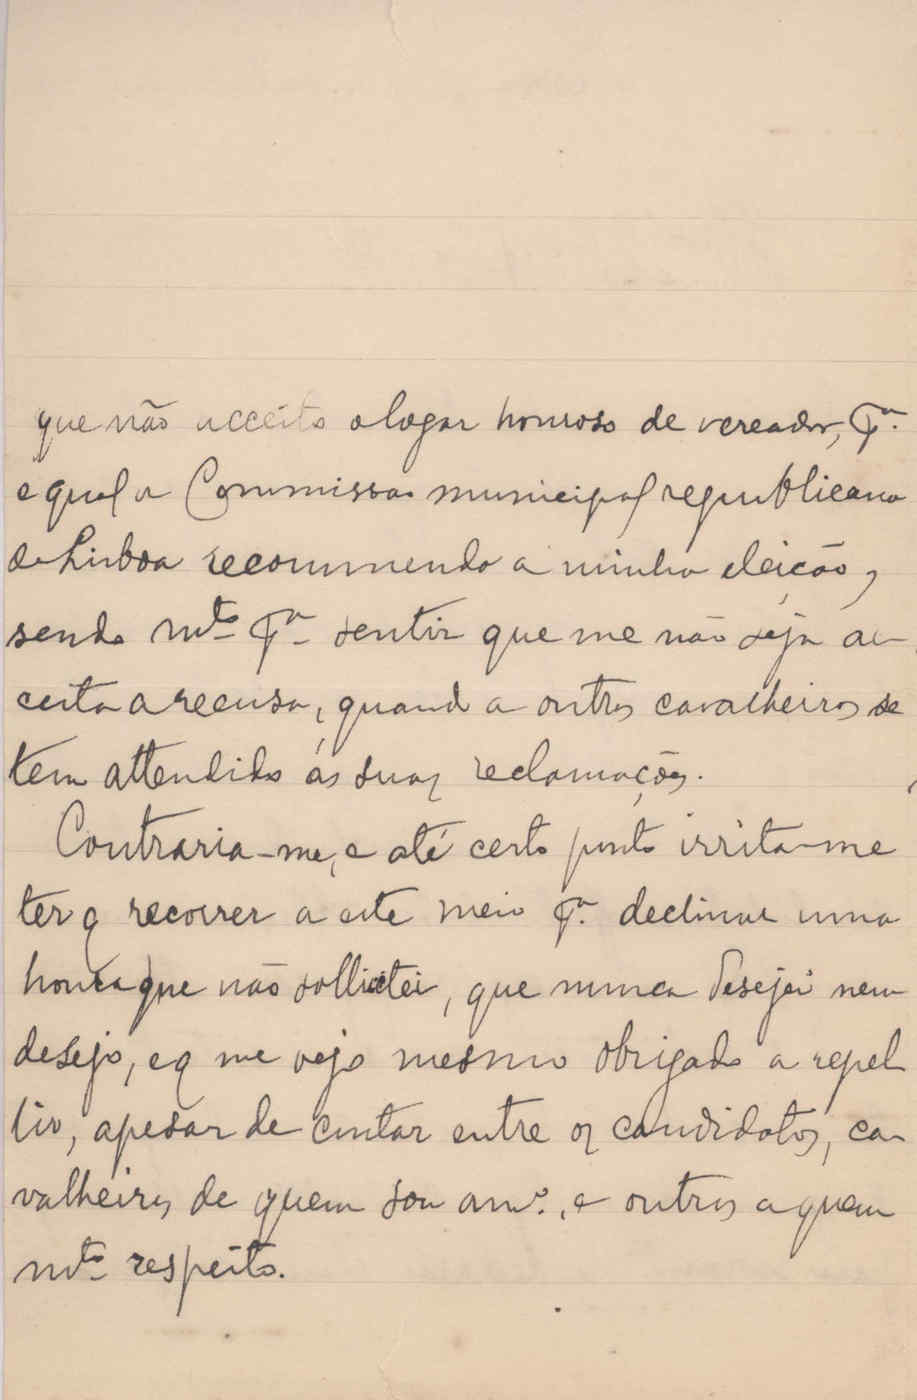 que não acceito o logar honroso de vereador, pª.
o qual a Commissão municipal republicana
de Lisboa recommenda a minha eleição,
sendo mtº pª sentir que me não seja ac-
ceita a recusa, quando a outros cavalheiros se
tem attendido ás suas reclamações.
Contraria-me, e até certo ponto irrita-me
ter q recorrer a este meio pª. declinar uma
honra que não sollicitei, que nunca desejei nem
desejo, e q me vejo mesmo obrigado a repel
lir, apesar de contar entre os candidatos, ca-
valheiros de quem sou amº., e outros a quem
mtº respeito.